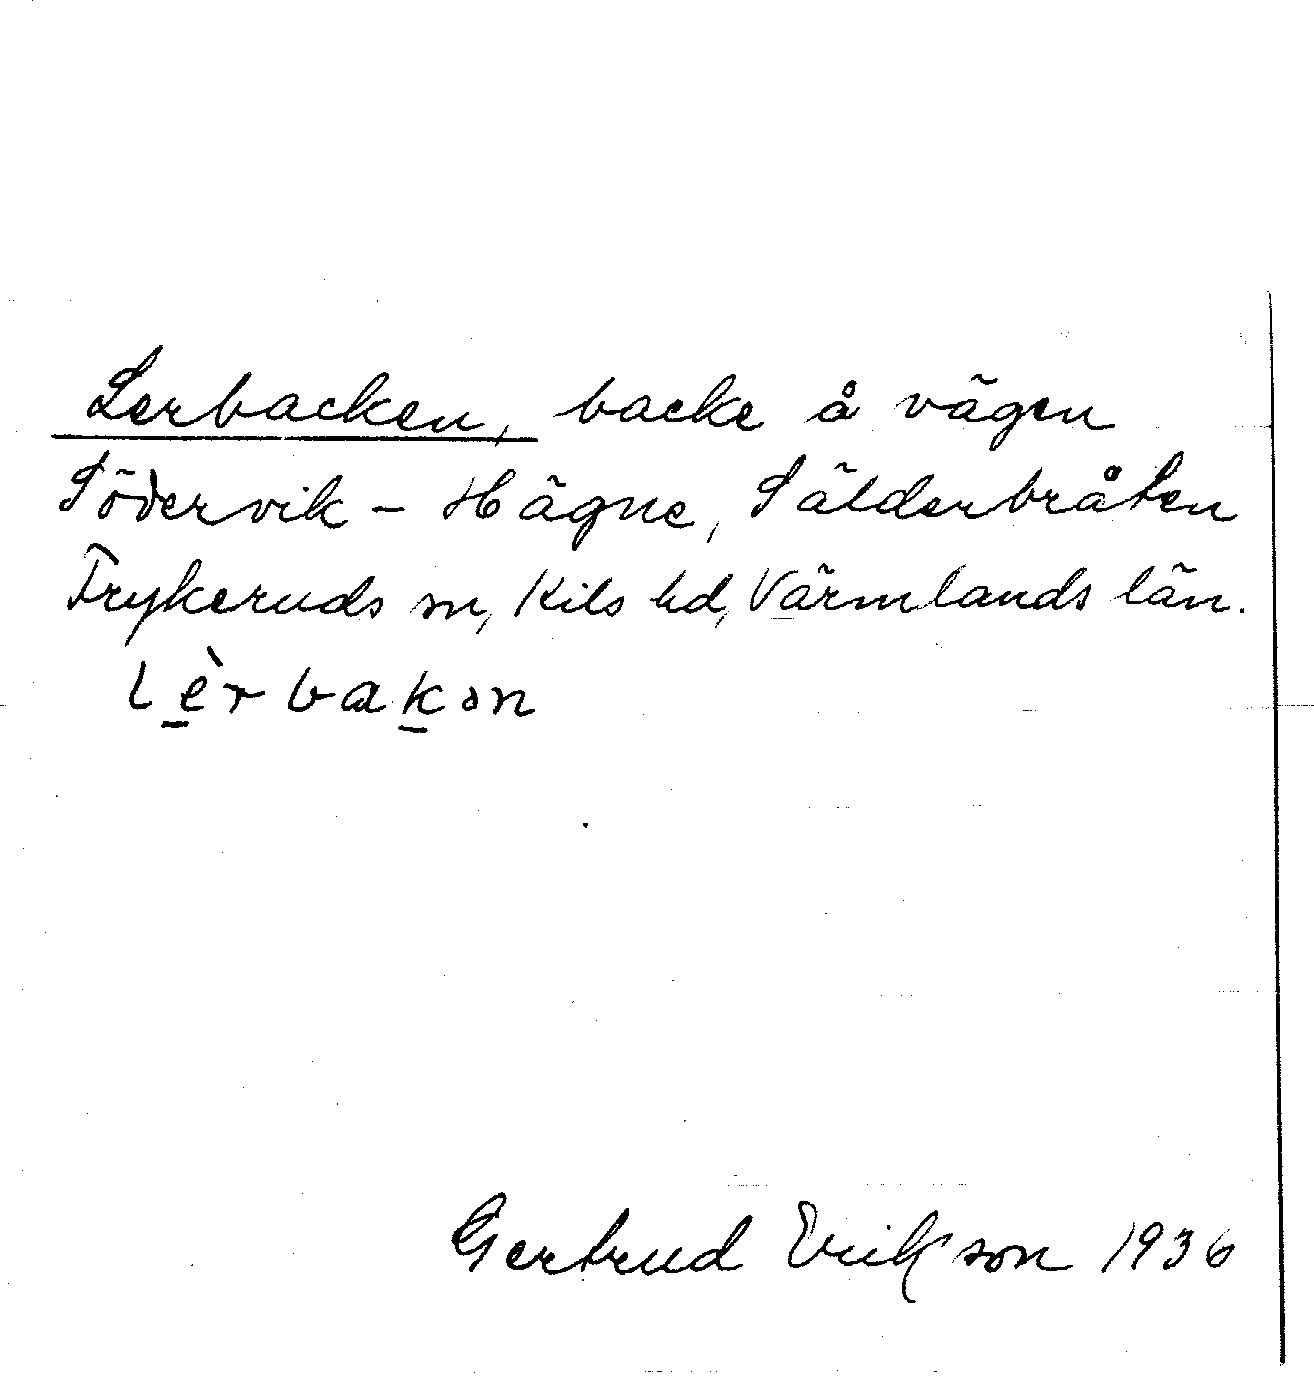 Lerbacken, backe å vägen
Södervik - Hägne, Sälderbråten
Frykeruds sn, Kils hd, Värmlands län.
lèrbakən
Gertrud Erikson 1936